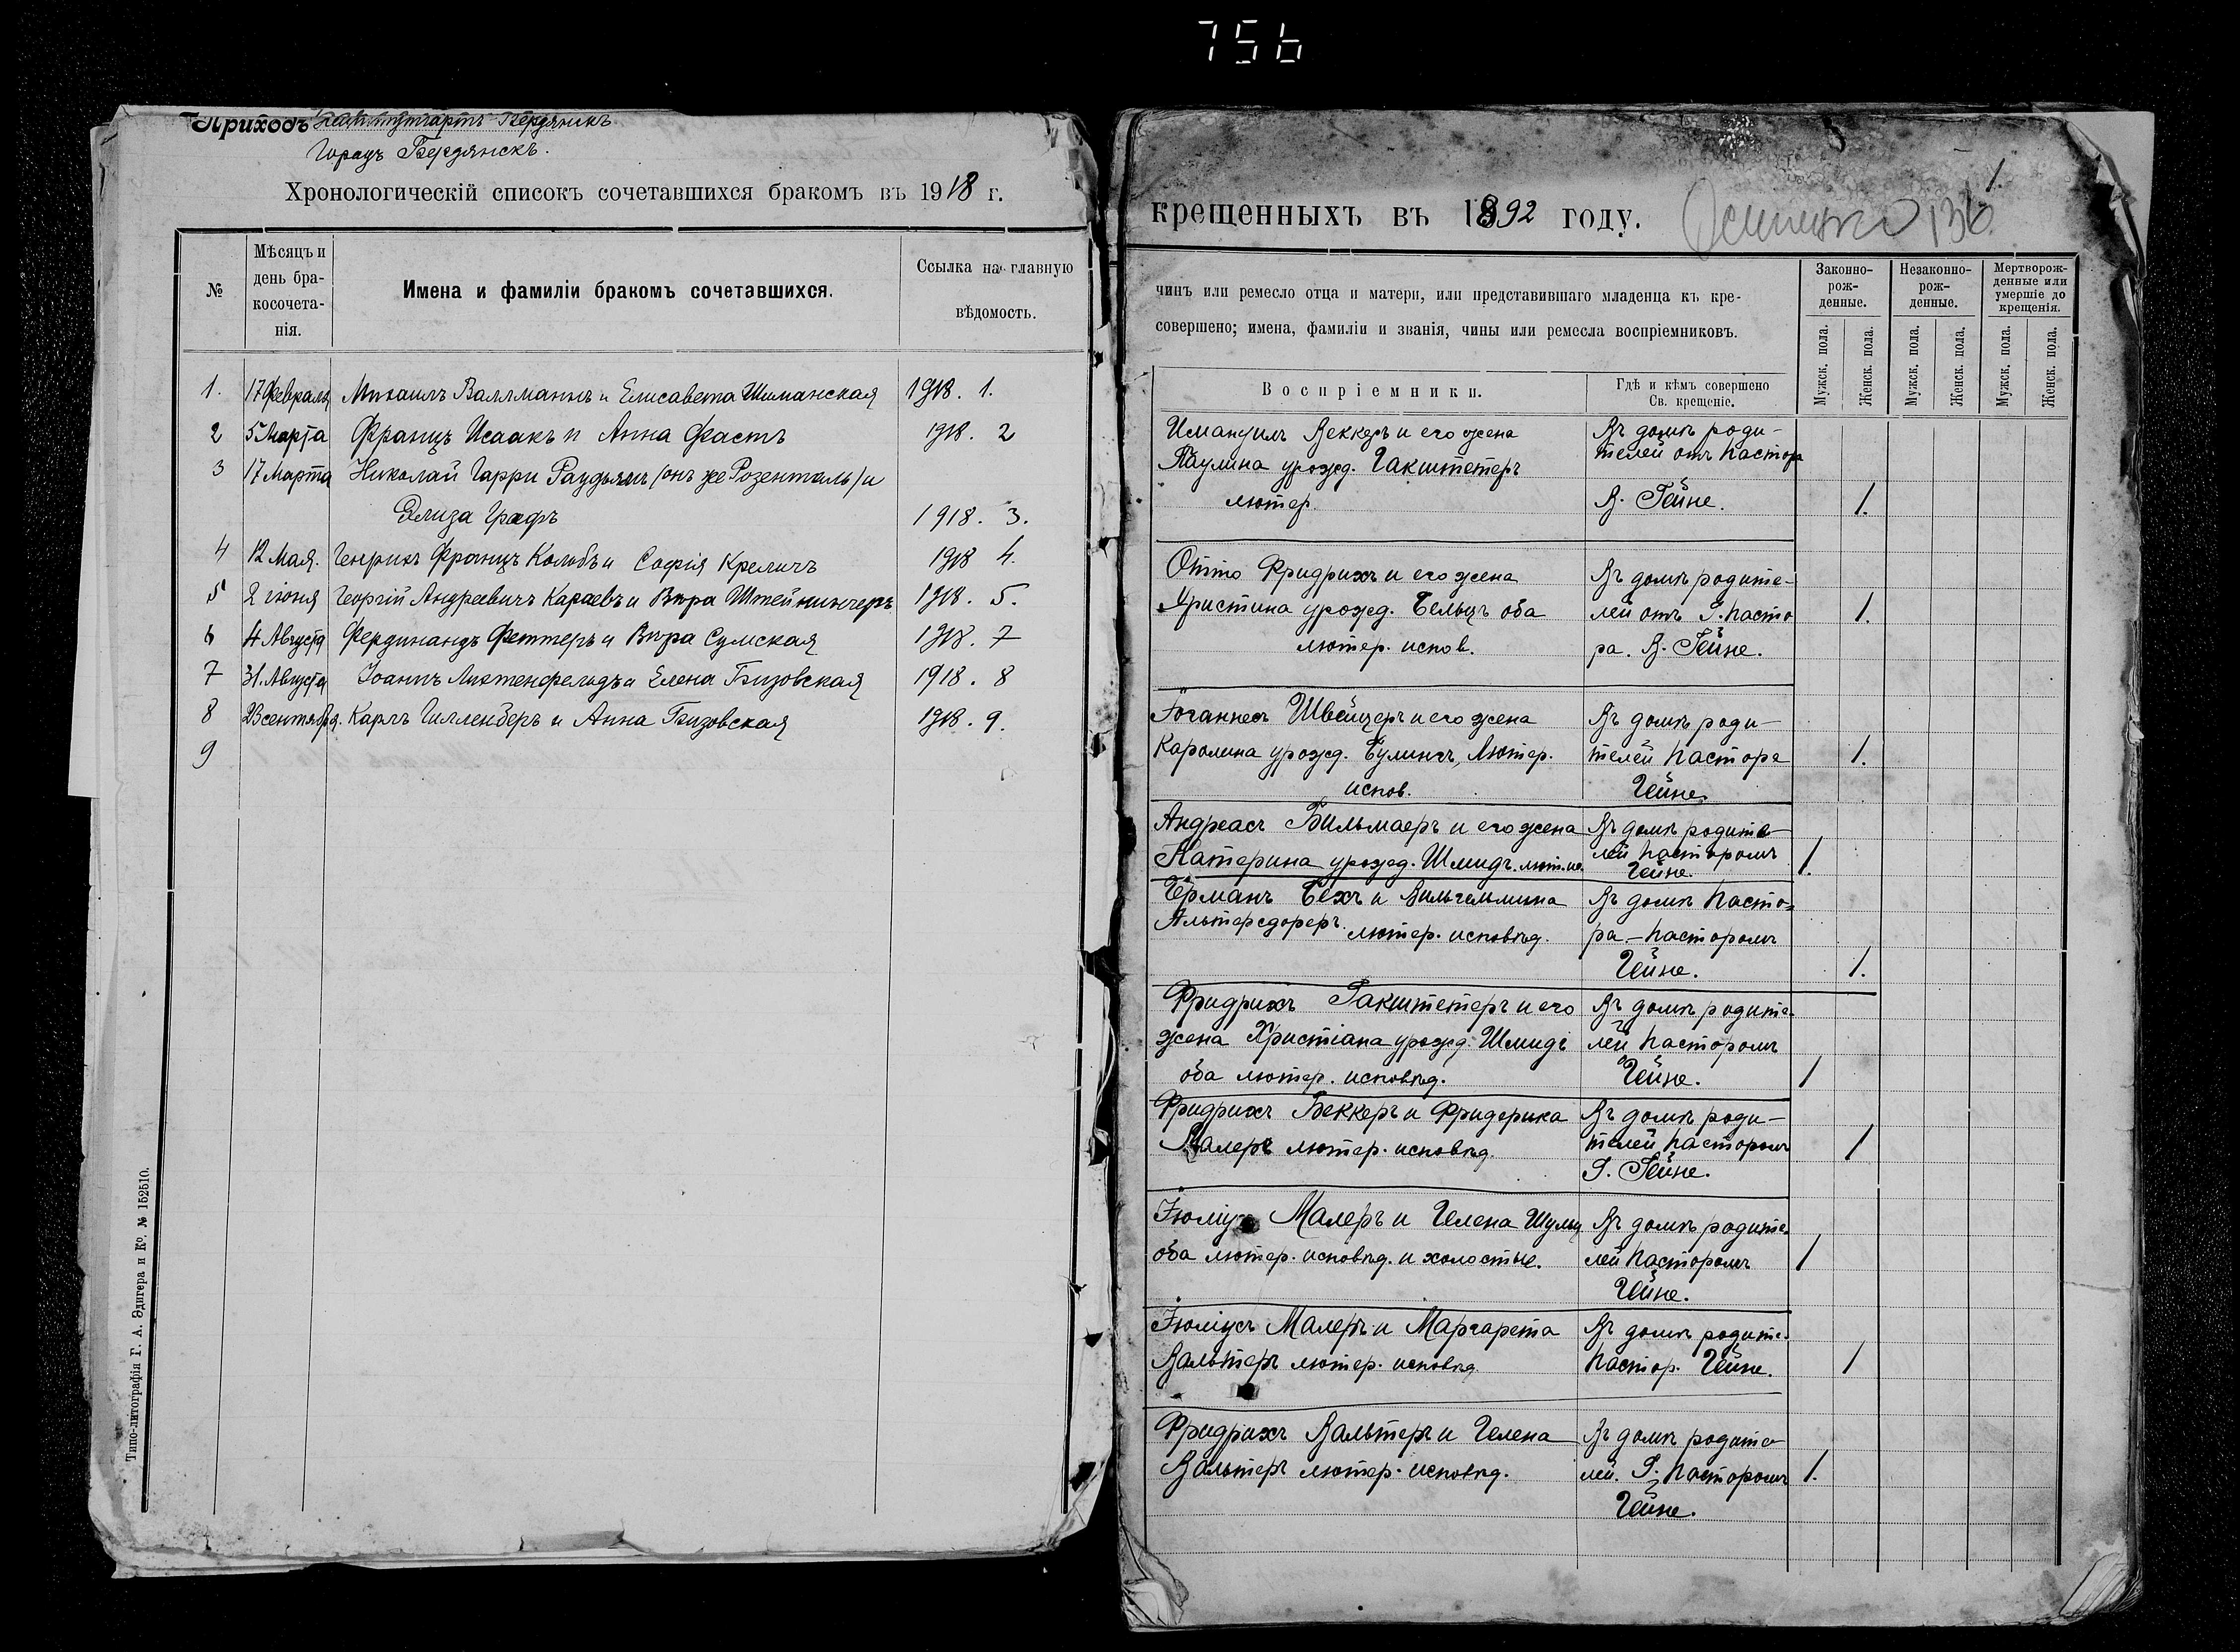 756
Приходъ Бердянскъ
Городъ Бердянскъ.
Хронологическій списокъ сочетавшихся бракомъ въ 1918 г.
№
Мѣсяцъ и день бракосочетанія.
Имена и фамиліи бракомъ сочетавшихся.
Ссылка на главную вѣдомость.
1. 17 Февраля Михаилъ Валлманнъ и Елисавета Шиманская 1918. 1.
2 5 Марта Францъ Исаакъ и Анна Фастъ 1918. 2
3 17 Марта Николай Гарри (онъ же Розенталь) и
Элиза Графъ 1918. 3.
4 12 Мая. Генрихъ Францъ Колобъ и Софія Креличъ 1918 4.
5 2 іюня Георгій Андреевичъ Караевъ и Вѣра Штейнингеръ 1918. 5.
6 4 Августа Фердинандъ Феттеръ и Вѣра Сумская 1918. 7
7 31. Августа Іоаннъ Лихтенфельдъ и Елена Бизовская 1918. 8
8 23 сентября. Карлъ Гилленберъ и Анна Бизовская 1918. 9.
9
Типо-литографія Г. А. Эдигера и Ко. № 152510.
1.
крещенныхъ въ 1892 году. 136.
чинъ или ремесло отца и матери, или представившаго младенца къ кре-
совершено; имена, фамиліи и званія, чины или ремесла воспріемниковъ.
Воспріемники.
Гдѣ и кѣмъ совершено
Св. крещеніе.
Законно-
рож-
денные.
Незаконно-
рож-
денные.
Мертворож-
денные или
умершіе до
крещенія.
Мужск. пола.
Женск. пола.
Мужск. пола.
Женск. пола.
Мужск. пола.
Женск. пола.
Имануилъ Веккеръ и его жена Въ домѣ роди-
Паулина урожд. Гакштетеръ телей отъ пастора
лютер. В. Гейне. 1.
Отто Фридрихъ и его жена Въ домѣ родите-
Христина урожд. Бельцъ оба лей отъ Г. пасто 1.
лютер. испов. ра. В. Гейне.
Іоганнесъ Швейцеръ и его жена Въ домѣ роди-
Каролина урожд. Булингъ, Лютер. телей пастора 1.
испов. Гейне.
Андреасъ Бильмаеръ и его жена Въ домѣ родите-
Катерина урожд. Шмидъ. лют. ис. лей пасторомъ 1.
Гейне.
Германъ Бехъ и Вильгельмина Въ домѣ пасто-
Альтерсдореръ. лютер. исповѣд. ра. - пасторомъ
Гейне. 1.
Фридрихъ Гакштетеръ и его Въ домѣ родите-
жена Христіана урожд. Шмидъ лей пасторомъ
оба лютер. исповѣд. Гейне. 1
Фридрихъ Беккеръ и Фридерика Въ домѣ роди-
Малеръ лютер. исповѣд. телей пасторомъ 1
Г. Гейне.
Юліусъ Малеръ и Гелена Шульц Въ домѣ родите-
оба лютер. исповѣд. и холостые. лей пасторомъ 1
Гейне.
Юліусъ Малеръ и Маргарета Въ домѣ родите.
Вальтеръ лютер. исповѣд. пастор. Гейне. 1
Фридрихъ Вальтеръ и Гелена Въ домѣ родите-
Вальтеръ лютер. исповѣд. лей. Г. пасторомъ 1.
Гейне.